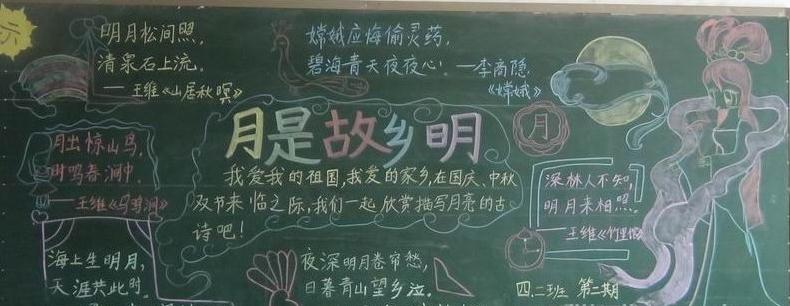 明月松间照,
清泉石上流。
——王维《山居秋暝》
嫦娥应悔偷灵药,
碧海青天夜夜心。——李商隐
《嫦娥》
月是故乡明
月
月出惊山鸟,
时鸣春涧中。
——王维《鸟鸣涧》
我爱我的祖国,我爱的家乡,在国庆、中秋
双节来临之际,我们一起欣赏描写月亮的古
诗吧!
深林人不知,
明月来相照。
——王维《竹里馆》
海上生明月,
天涯共此时。
夜深明月卷帘愁,
日暮青山望乡泣。
四.二班 第二期